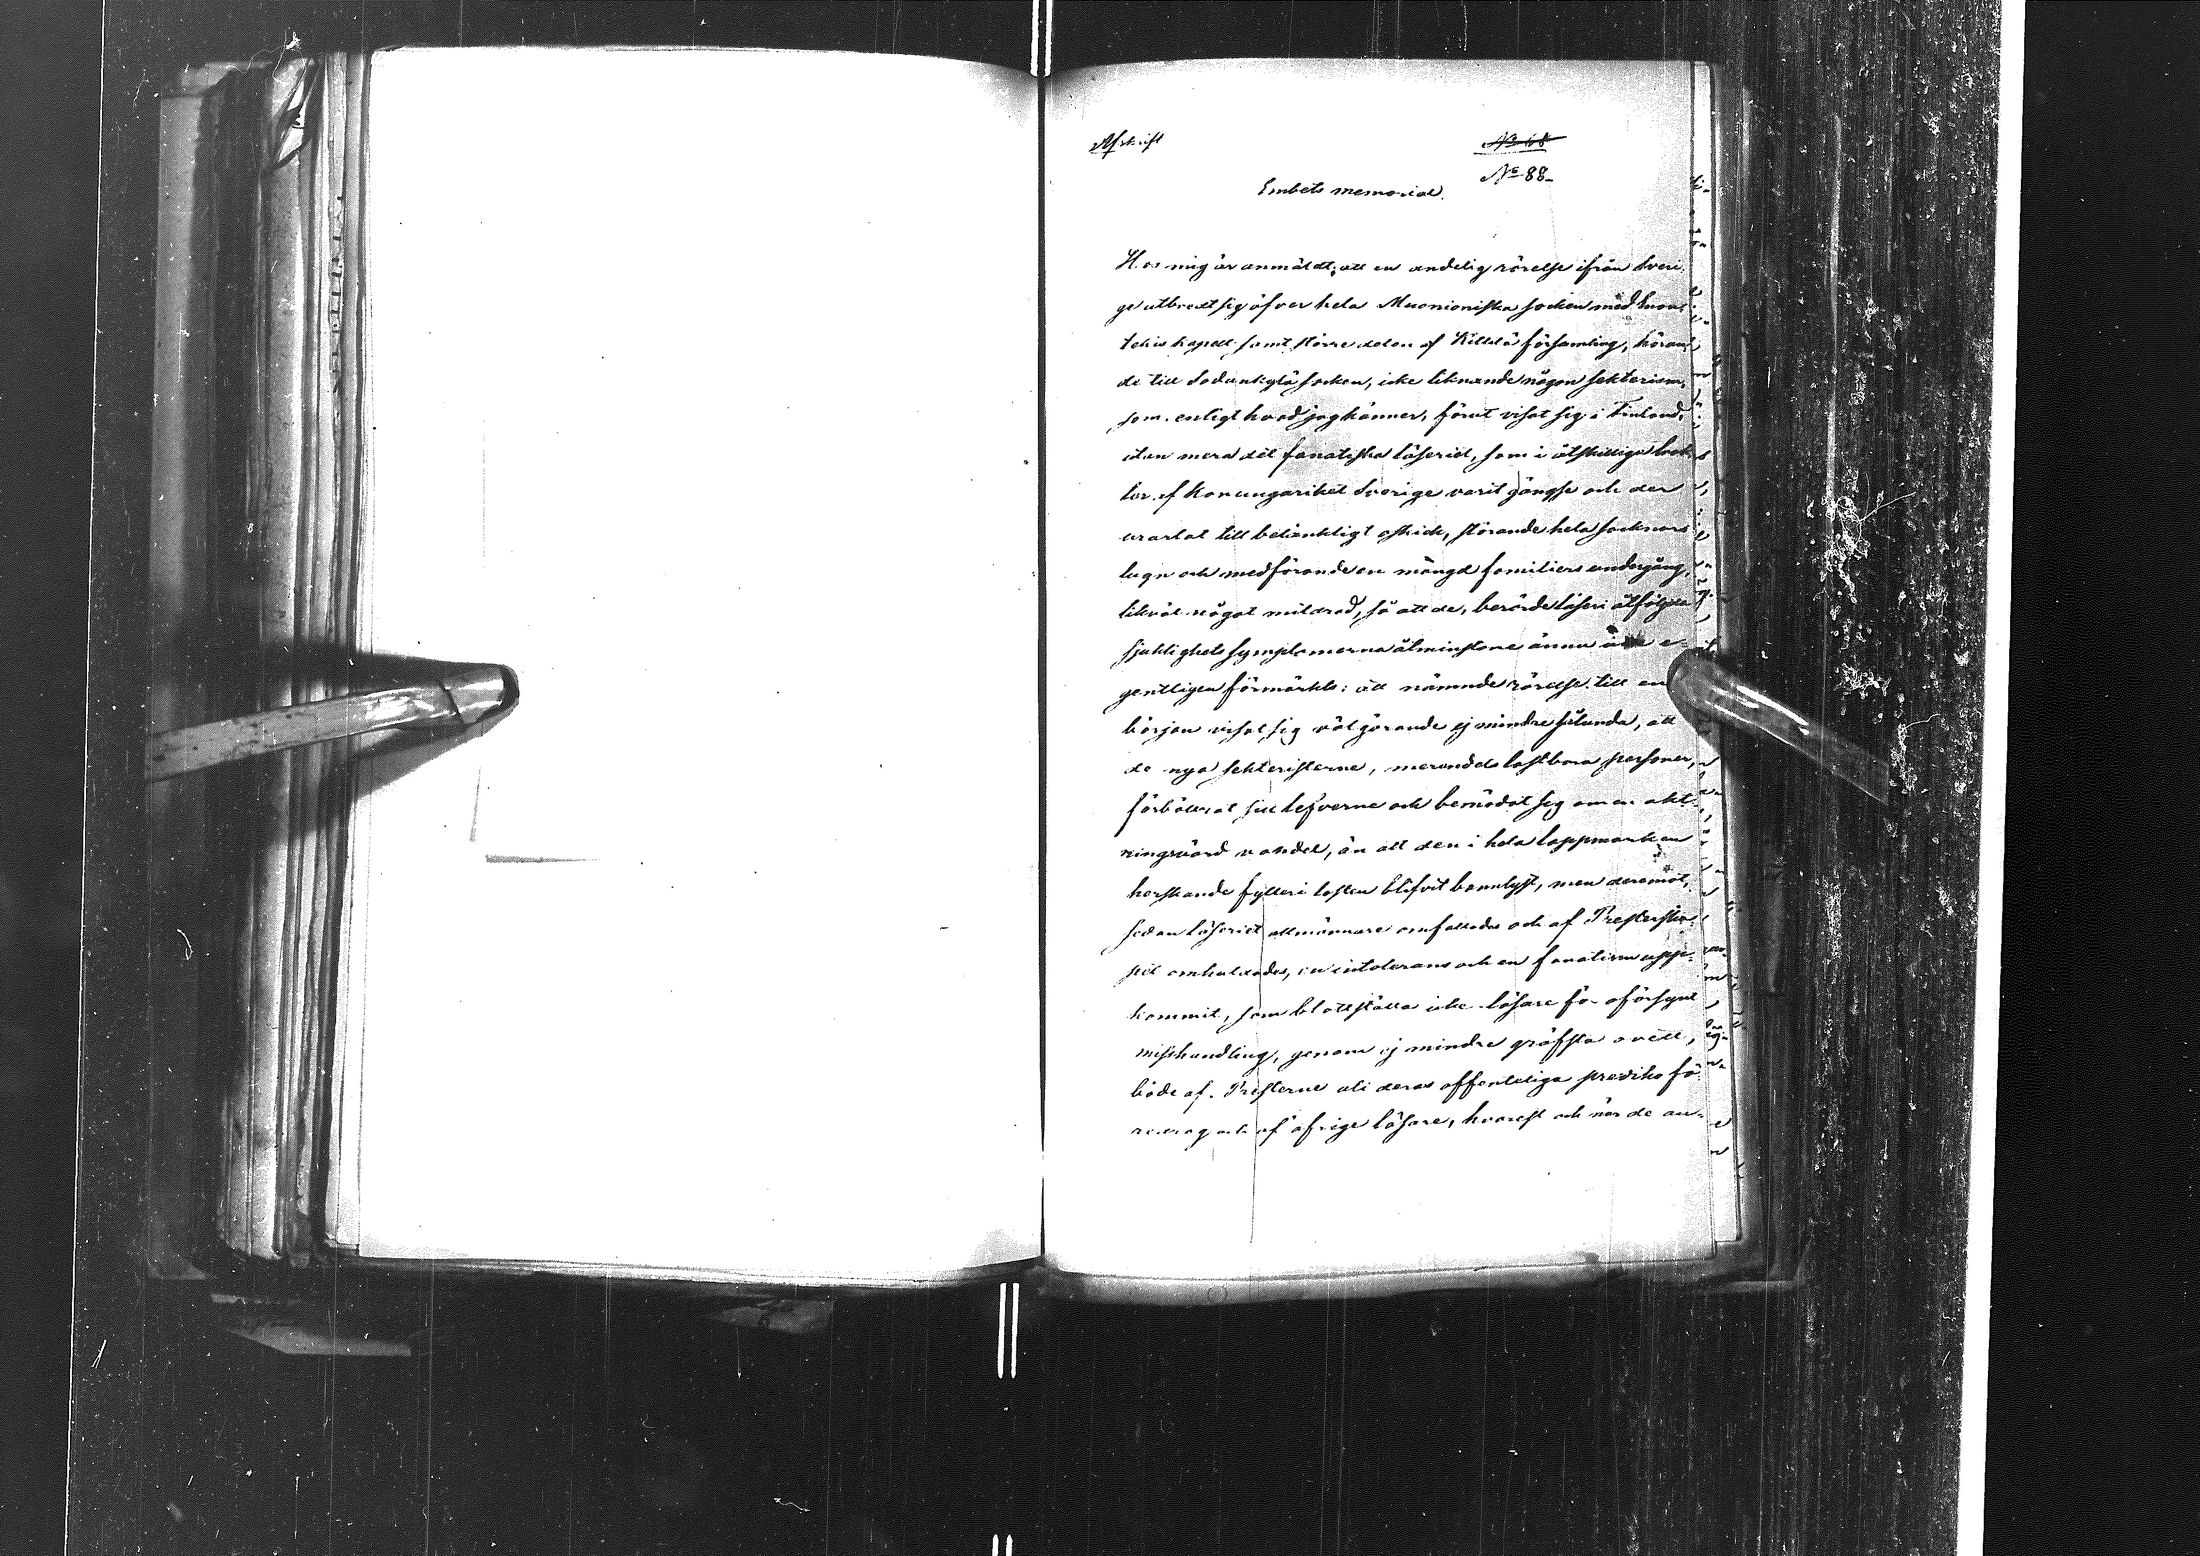 Afskrift
No 68
No 88
Embets memorial.
Hos mig är anmäldt, att en andelig rörelse ifrån Sveri-
ge utbredt sig öfver hela Muonioniska socken med Enon-
tekis kapell samt större delen af Kittilä församling, höran-
de till Sodankylä socken, icke liknande någon sekterism,
som enligt hvad jag känner, förut visat sig i Finland,
utan mera det fanatiska läseriet, som i åtskilliga trak-
ter af Konungariket Sverige varit gängse och der
urartat till betänkligt oskick, störande hela socknars
lugn och medförande en mängd familiers undergång,
likväl något mildrad, så att de, berörde läseri åtföljda
sjuklighets symptomerna åtminstone ännu icke e-
gentligen förmärkts: att nämnde rörelse till en
början visat sig välgörande ej mindre sålunda, att
de nya sekteristerne, merendels lastbara personer,
förbättrat sitt lefverne och bemödat sig om en akt-
ningsvärd vandel, än att den i hela lappmarken
herskande fylleri lasten blifvit bannlyst, men deremot,
sedan läseriet allmännare omfattades och af Presterska-
pet omhuldades, en intolerans och en fanatism upp-
kommit, som blottställa icke läsare för oförsynt
misshandling, genom ej mindre gröfsta ovett,
både af Presterne uti deras offentliga predikofö-
redrag och af öfrige läsare, hvarest och när de an-